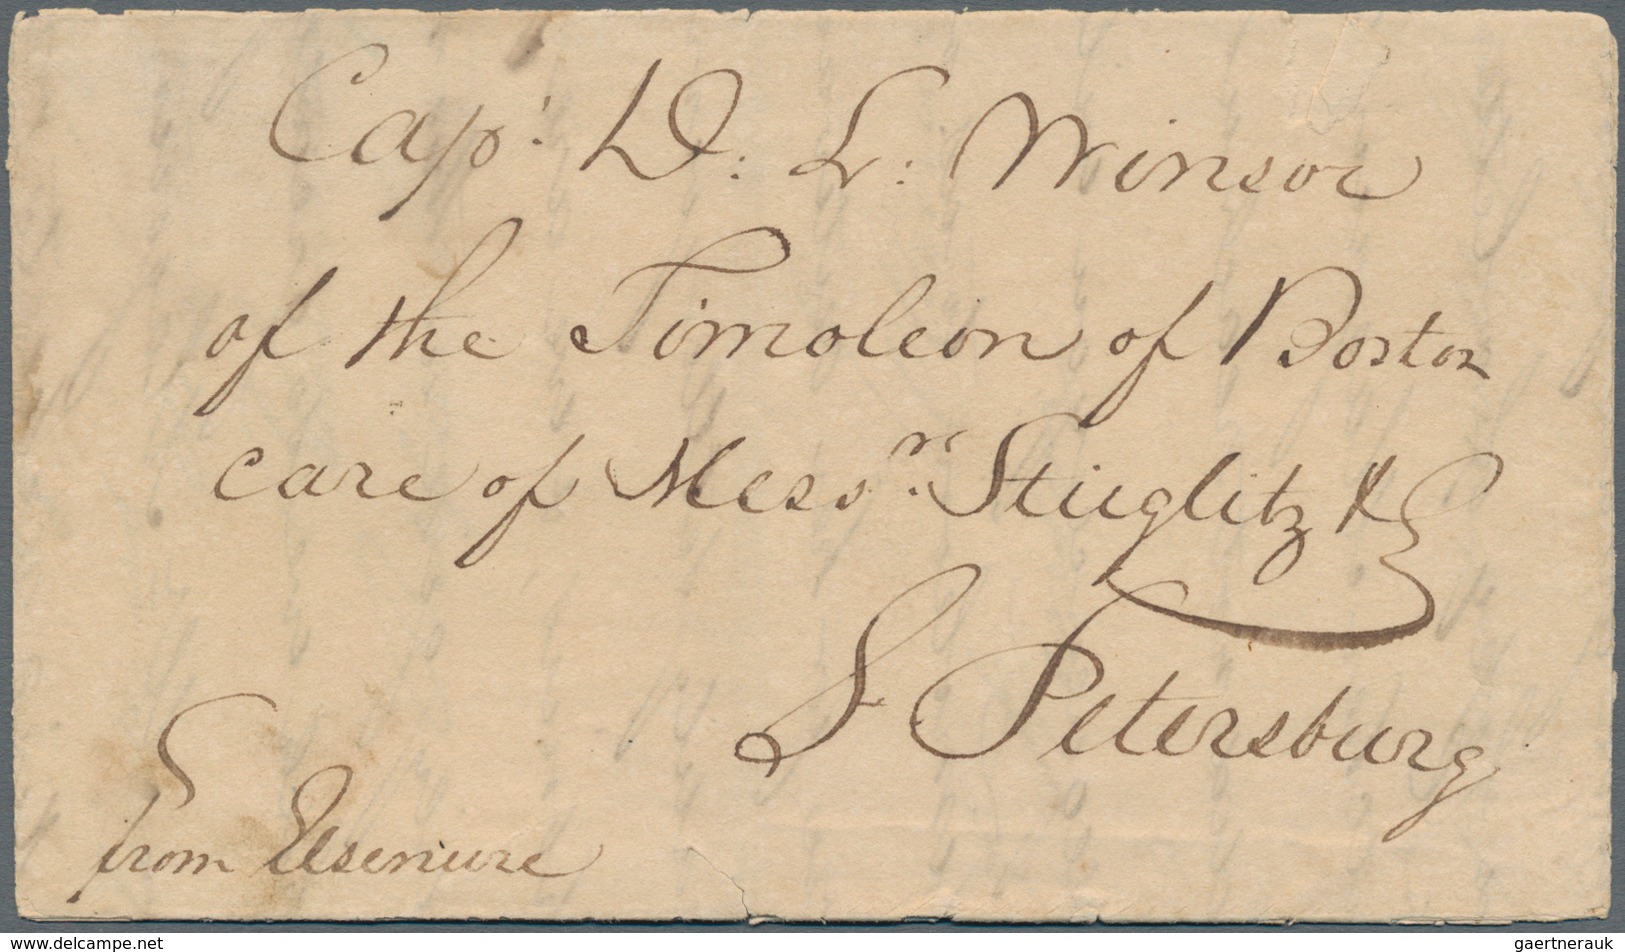 Cap.t D. L. Winsor
of the Timoleon of Boston
care of Mess.rs Stieglitz & C
S Petersburg
from Elseniure
www.delcampe.net
gaertnerauk